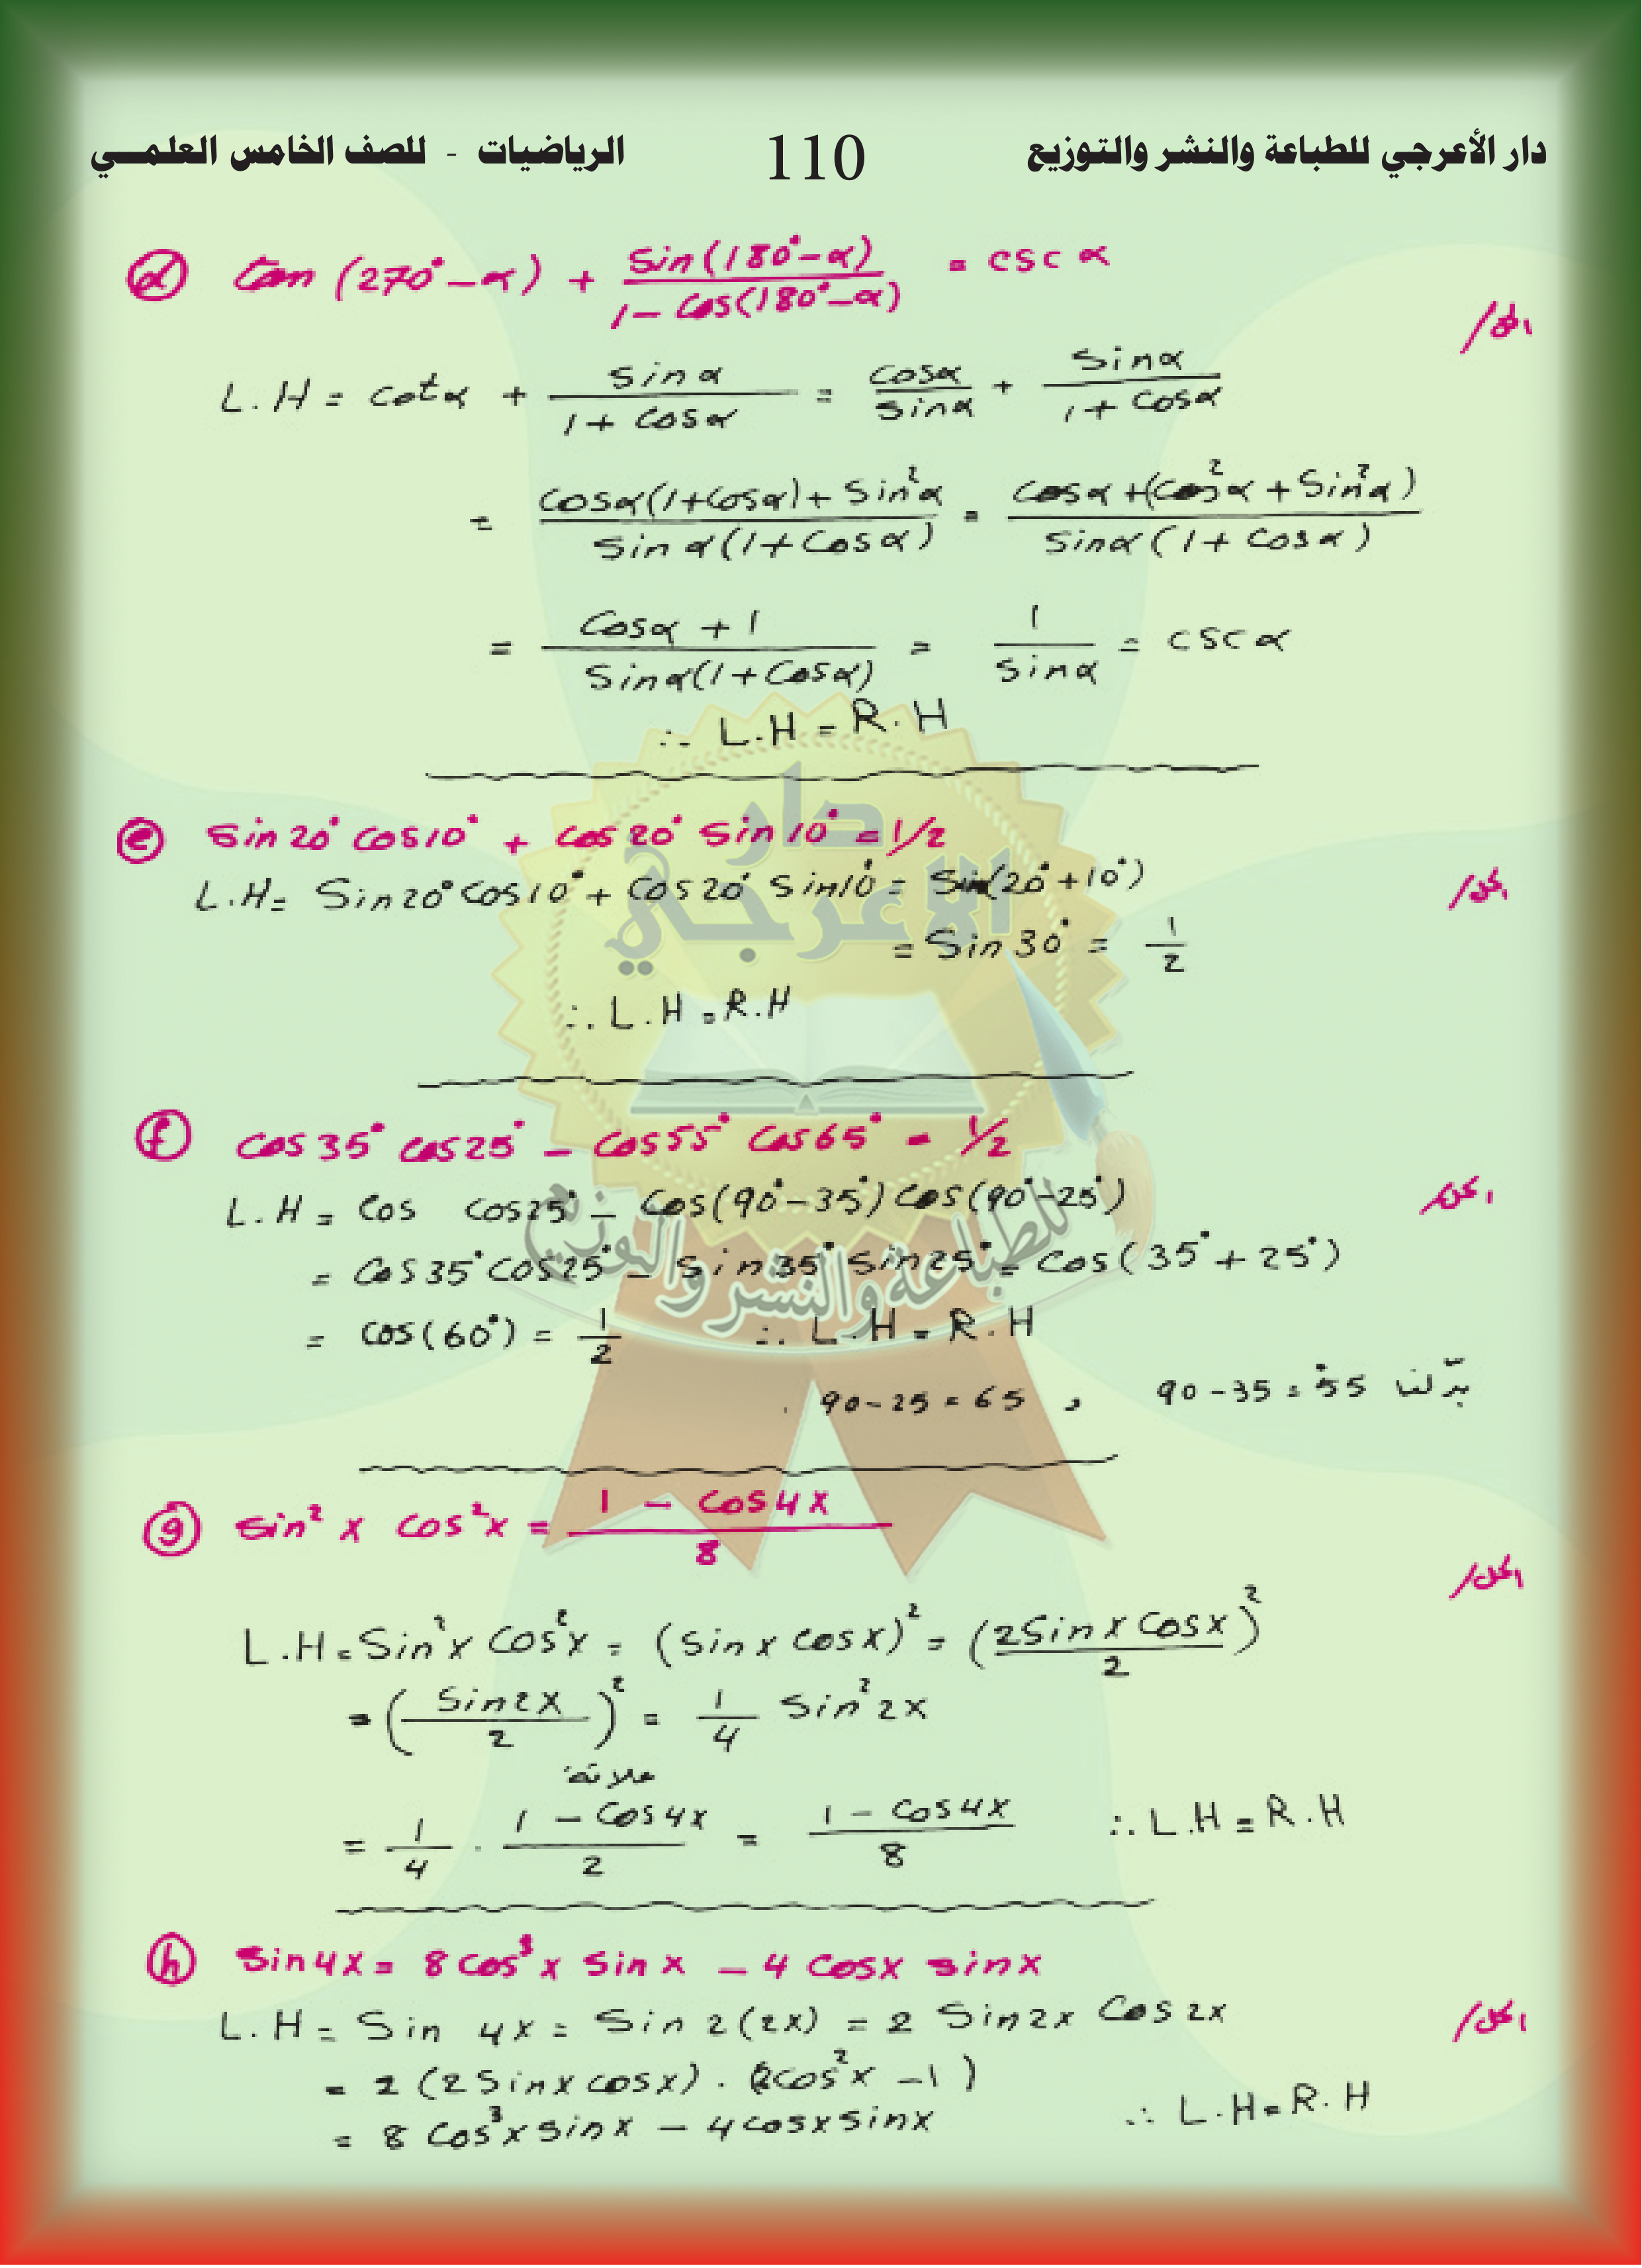 دار الأعرجي للطباعة والنشر والتوزيع 110 الرياضيات - للصف الخامس العلمـــي
ⓓ tan (270° - α) + sin(180° - α) / 1 - cos(180° - α) = csc α
الحل/
L.H = cot α + sin α / 1 + cos α = cos α / sin α + sin α / 1 + cos α
= cos α(1 + cos α) + sin² α / sin α(1 + cos α) = cos α + (cos² α + sin² α) / sin α(1 + cos α)
= cos α + 1 / sin α(1 + cos α) = 1 / sin α = csc α
∴ L.H = R.H
ⓔ sin 20° cos 10° + cos 20° sin 10° = 1/2
الحل/
L.H = Sin 20° cos 10° + cos 20° sin 10° = sin(20° + 10°)
= Sin 30° = 1/2
∴ L.H = R.H
ⓕ cos 35° cos 25° - cos 55° cos 65° = 1/2
الحل
L.H = cos cos 25° - cos(90° - 35°) cos(90° - 25°)
= cos 35° cos 25° - sin 35° sin 25° = cos(35° + 25°)
= cos(60°) = 1/2 ∴ L.H = R.H
بدّلنا 90 - 35 = 55° , 90 - 25 = 65 .
ⓖ sin² x cos² x = 1 - cos 4x / 8
الحل/
L.H = Sin² x cos² x = (sin x cos x)² = (2 sin x cos x / 2)²
= (sin 2x / 2)² = 1/4 sin² 2x
علاقة
= 1/4 . 1 - cos 4x / 2 = 1 - cos 4x / 8 ∴ L.H = R.H
ⓗ sin 4x = 8 cos³ x sin x - 4 cos x sin x
الحل/
L.H = Sin 4x = Sin 2(2x) = 2 Sin 2x Cos 2x
= 2 (2 Sin x cos x) . (2cos² x - 1)
= 8 cos³ x sin x - 4 cos x sin x ∴ L.H = R.H
دار
الاعرجي
للطباعة والنشر والتوزيع